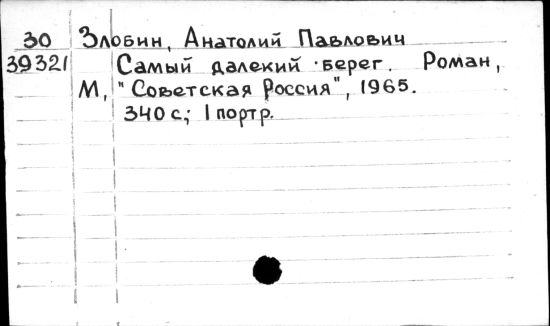 30 Злобин, Анатолий Павлович
39321 Самый далекий берег. Роман,
М, "Советская Россия", 1965.
340 с.; 1 портр.